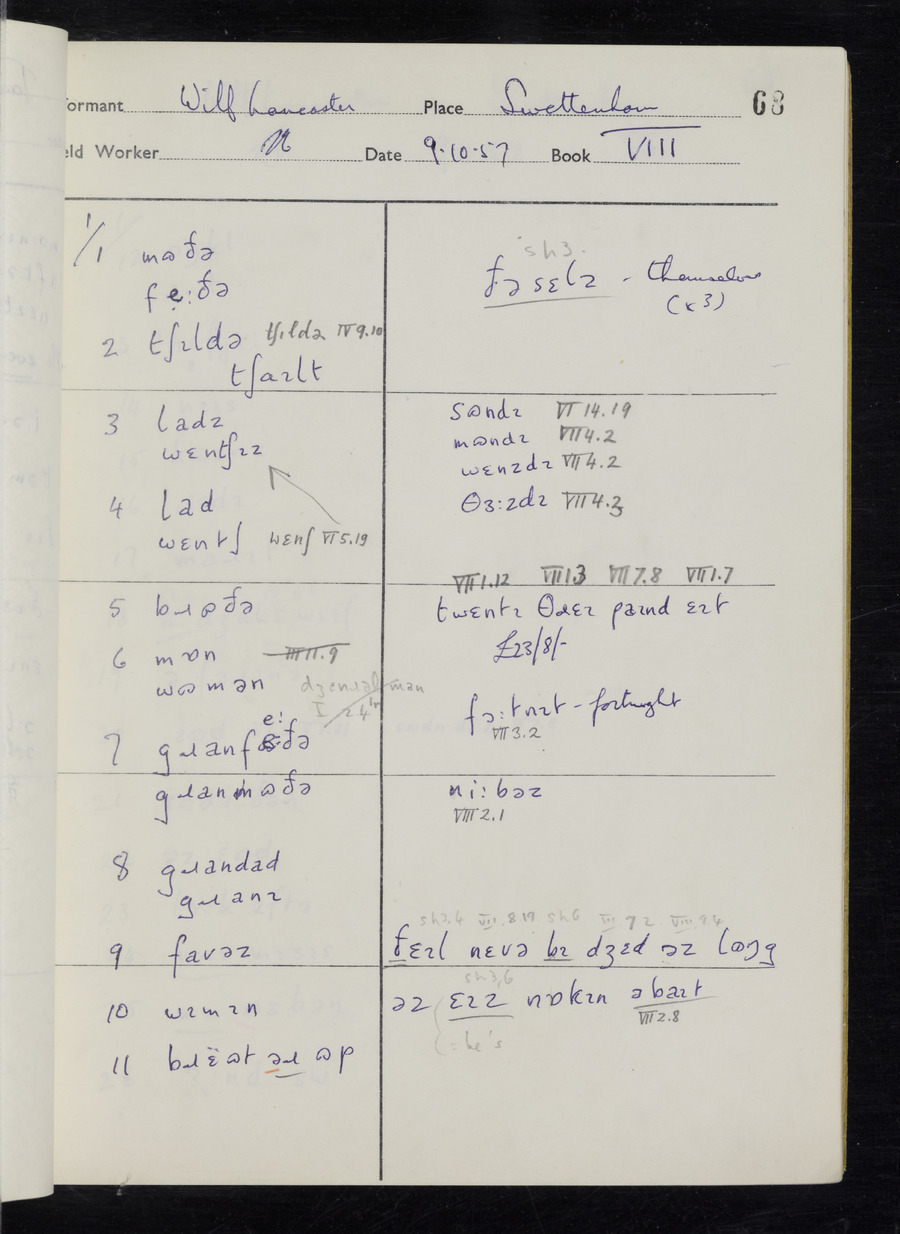 ormant Wilf Lancaster Place Swettenham 68
eld Worker N Date 9·10·57 Book VIII
1/1 mɷðə
fẹ:ðə
2 tʃɪldə tʃɪldə IV 9.10
tʃaɪlt
3 ladz
wɛntʃɪz
4 lad
wɛntʃ wɛnʃ VI 5.19
5 bɹɷðə
6 mɒn III 11.9
wɷmən
7 gɹanfe:ðə
gɹanmɷðə
8 gɹandad
gɹanɪ
9 favəz
10 wɪmɪn
11 bɹɛ̈ɷt əɹ ɷp
sh3.
ðəsɛlz - themselves
(x3)
sɷndɪ VI 14.19
mɷndɪ VII 4.2
wɛnzdɪ VII 4.2
θɜ:zdɪ VII 4.3
VII 1.12 VII 1.3 VII 7.8 VII 1.7
twɛntɪ θɹɛɪ paɪnd ɛɪt
£23/8/-
fɔ:tnɪt - fortnight
VII 3.2
ni:bəz
VIII 2.1
ðɛɪl nɛvə bɪ dʒɛd əz lɷŋg
sh3,6
əz ɛɪz nɒkɪn əbaɪt
VII 2.8
(= he's